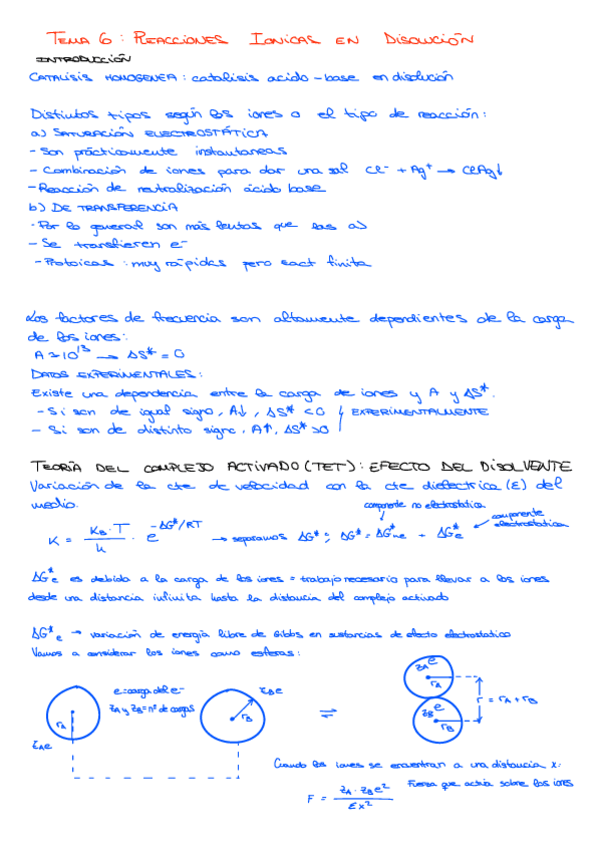 TEMA 6: REACCIONES IONICAS EN DISOLUCIÓN
INTRODUCCIÓN
CATALISIS HOMOGENEA: catalisis acido-base en disolución
Distintos tipos según los iones o el tipo de reacción:
a) SATURACIÓN ELECTROSTÁTICA
- Son prácticamente instantaneas
- Combinación de iones para dar una sal Cl⁻ + Ag⁺ → ClAg↓
- Reacción de neutralización ácido base
b) DE TRANSFERENCIA
· Por lo general son más lentas que las a)
- Se transfieren e⁻
- Protoicas: muy rápidas pero cact finita
Los factores de frecuencia son altamente dependientes de la carga
de los iones:
A ≈ 10¹³ → ΔS* = 0
DATOS EXPERIMENTALES:
Existe una dependencia entre la carga de iones y A y ΔS*.
- Si son de igual signo, A↓, ΔS* < 0 EXPERIMENTALMENTE
- Si son de distinto signo, A↑, ΔS* > 0
TEORÍA DEL COMPLEJO ACTIVADO (TET): EFECTO DEL DISOLVENTE
Variación de la cte de velocidad con la cte dieléctrica (ε) del
medio.
componente no electrostatica
componente electrostatica
K = K_B · T / h · e^(-ΔG*/RT) → separamos ΔG*; ΔG* = ΔG*ne + ΔG*e
ΔG*e es debido a la carga de los iones = trabajo necesario para llevar a los iones
desde una distancia infinita hasta la distancia del complejo activado
ΔG*e → variación de energía libre de Gibbs en sustancias de efecto electrostatico
Vamos a considerar los iones como esferas:
e = carga del e⁻
z_A y z_B = nº de cargas
r_A
z_A e
z_B e
r_B
⇌
z_A e
r_A
z_B e
r_B
r = r_A + r_B
Cuando los iones se encuentran a una distancia x:
F = z_A · z_B e² / εx² Fuerza que actúa sobre los iones